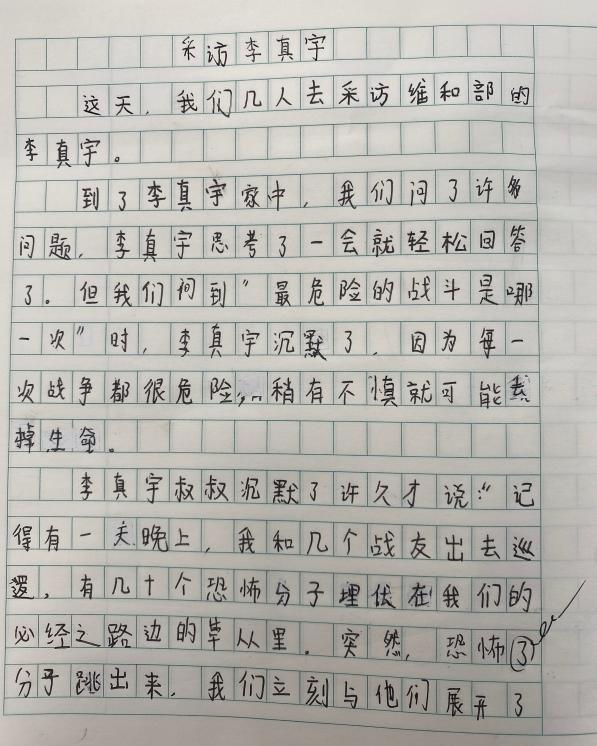 采访李真宇
这天，我们几人去采访维和部的
李真宇。
到了李真宇家中，我们问了许多
问题，李真宇思考了一会就轻松回答
了。但我们问到"最危险的战斗是哪
一次"时，李真宇沉默了，因为每一
次战争都很危险，稍有不慎就可能丢
掉生命。
李真宇叔叔沉默了许久才说："记
得有一天晚上，我和几个战友出去巡
逻，有几十个恐怖分子埋伏在我们的
必经之路边的草从里。突然，恐怖
分子跳出来，我们立刻与他们展开了